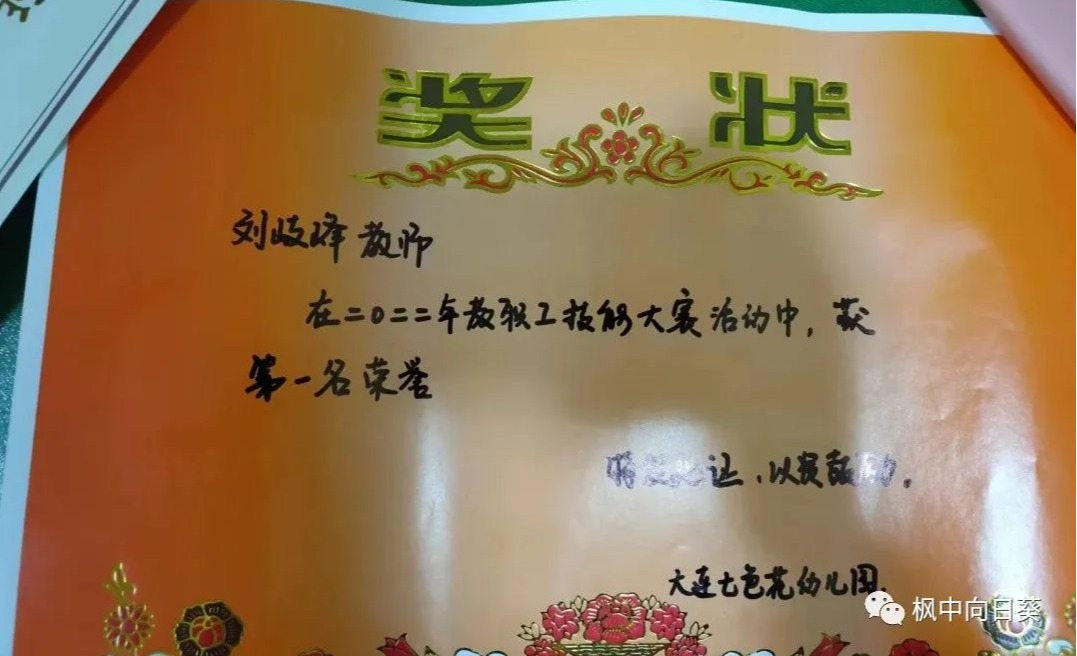 奖状
刘岐峰教师
在二〇二二年教职工技能大赛活动中，获
第一名荣誉
特发此证、以资鼓励。
大连七色花幼儿园
枫中向日葵